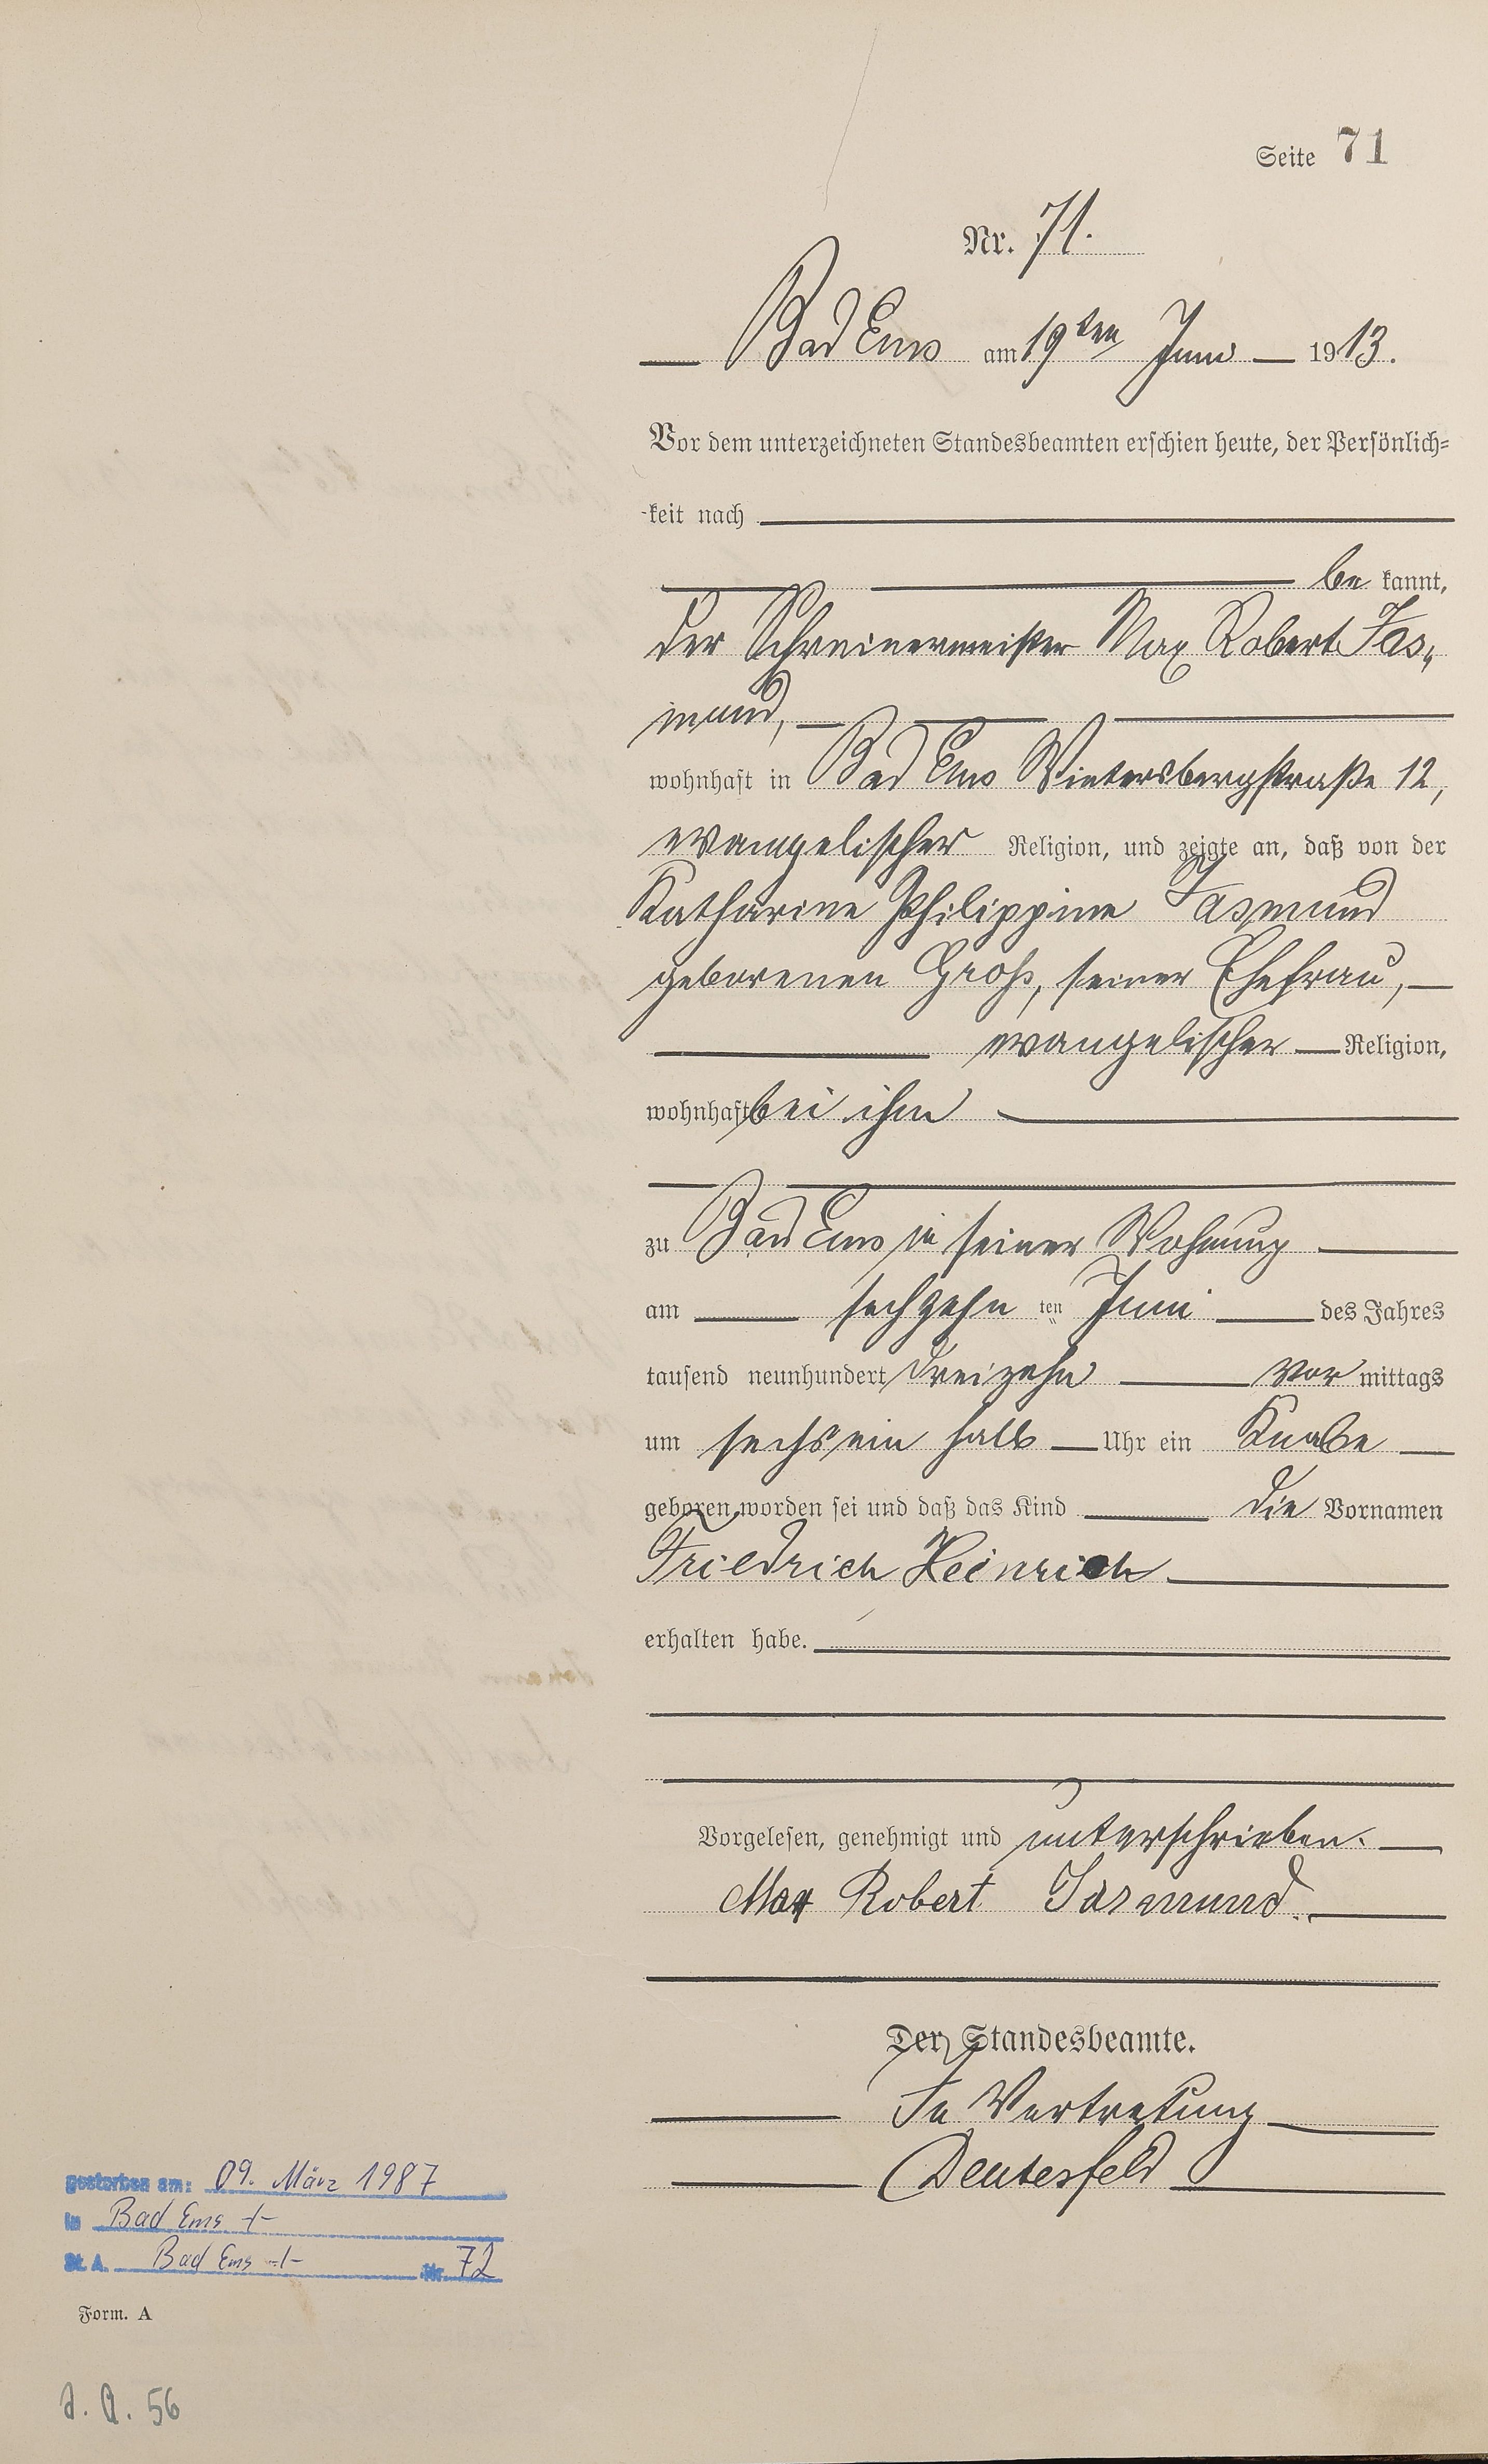 Seite 71
Nr. 71.
Bad Ems am 19ten Juni 1913.
Vor dem unterzeichneten Standesbeamten erschien heute, der Persönlich-
keit nach
be kannt,
der Schreinermeister Max Robert Jas-
mund,
wohnhaft in Bad Ems Wintersbergstraße 12,
evangelischer Religion, und zeigte an, daß von der
Katharine Philippine Jasmund
geborenen Groß, seiner Ehefrau,
evangelischer Religion,
wohnhaft bei ihm
zu Bad Ems in seiner Wohnung
am sechzehn ten Juni des Jahres
tausend neunhundert dreizehn vor mittags
um sechs ein halb Uhr ein Knabe
geboren worden sei und daß das Kind die Vornamen
Friedrich Heinrich
erhalten habe.
Vorgelesen, genehmigt und unterschrieben.
Max Robert Jasmund.
Der Standesbeamte.
In Vertretung
Deutesfeld
gestorben am: 09. März 1987
in Bad Ems -/-
St. A. Bad Ems -/- Nr. 72
Form. A
J. A. 56